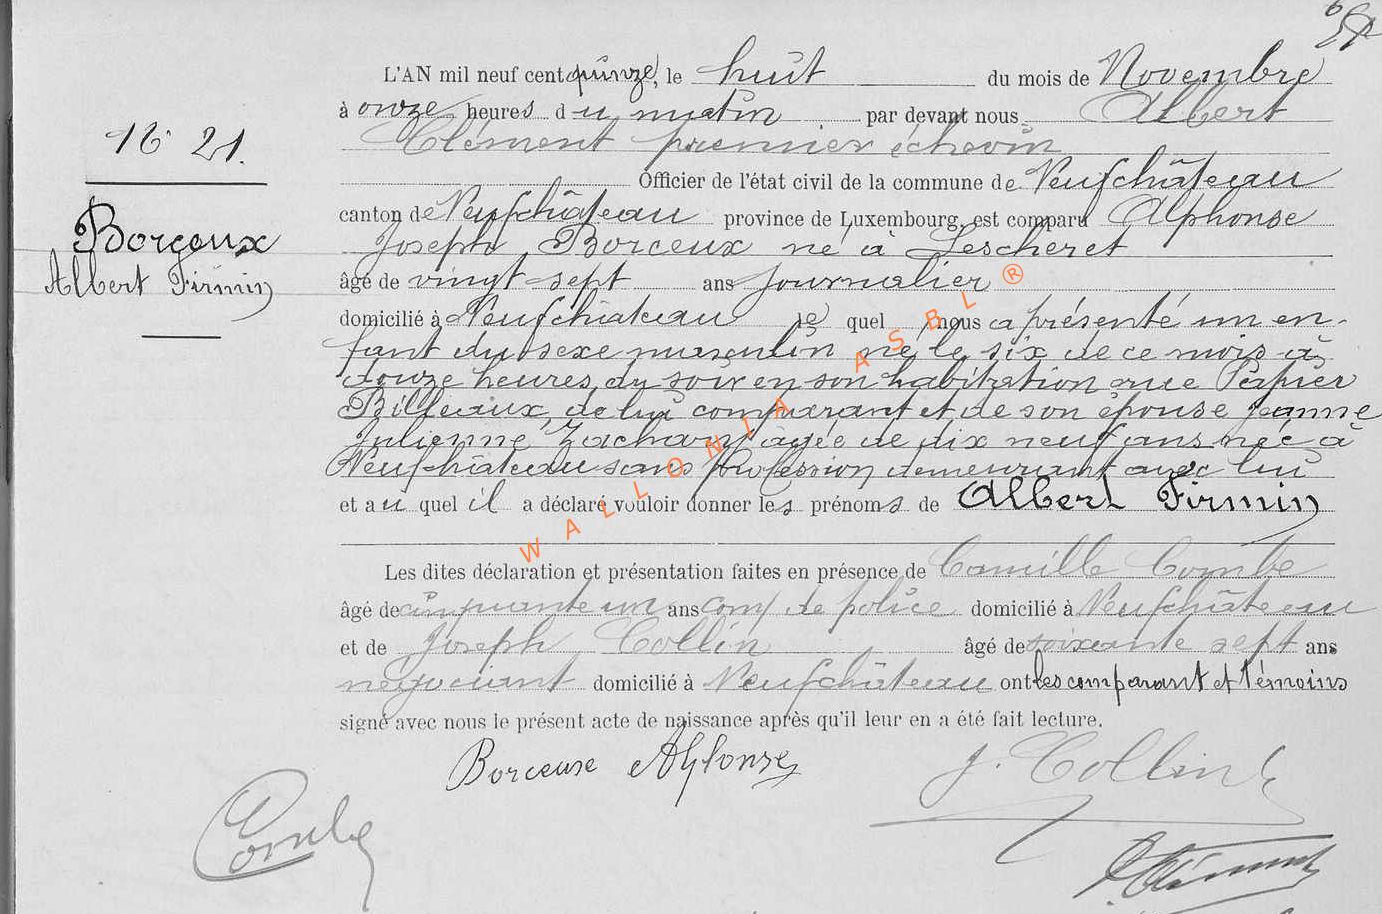 L'AN mil neuf cent quinze, le huit du mois de Novembre
à onze heures du matin par devant nous Albert
Clément premier échevin
N° 21.
Officier de l'état civil de la commune de Neufchâteau
canton de Neufchâteau province de Luxembourg, est comparu Alphonse
Borceux
Joseph Borceux né à Lescheret
Albert Firmin
âgé de vingt-sept ans journalier
domicilié à Neufchâteau le quel nous a présenté un en-
fant du sexe masculin né le six de ce mois à
douze heures du soir en son habitation rue
Billeaux, de lui comparant et de son épouse Jeanne
Julienne Zachary âgée de dix neuf ans née à
Neufchâteau sans profession demeurant avec lui
et au quel il a déclaré vouloir donner les prénoms de Albert Firmin
WALLONIA ASBL ®
Les dites déclaration et présentation faites en présence de Camille Combe
âgé de cinquante un ans com, de police domicilié à Neufchâteau
et de Joseph Collin âgé de soixante sept ans
négociant domicilié à Neufchâteau ont les comparant et témoins
signé avec nous le présent acte de naissance après qu'il leur en a été fait lecture.
Borceuse Alfonse J. Collin
Combe
AClément